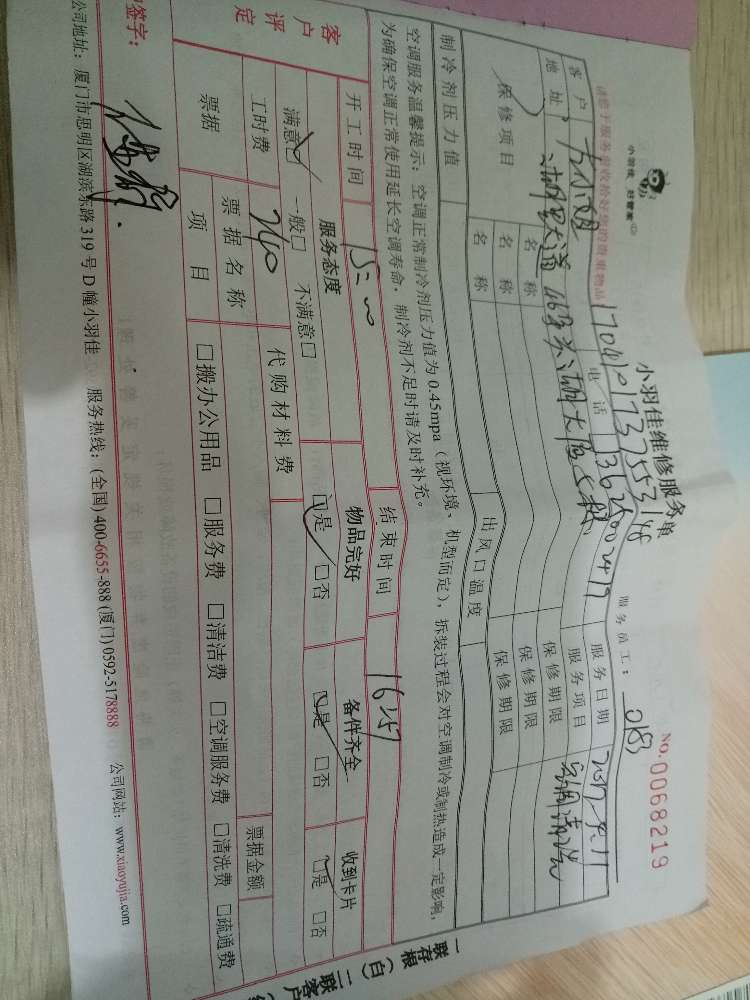 小羽佳 好管家
小羽佳维修服务单
NO.0068219
1704101737553148
服务员工：0183
请您于服务前收拾好您的贵重物品
客户 方小姐 电话 13625002419 服务日期 2017.4.11
地址 湖里大道 46号 服务项目 空调清洗
保修项目 名称 保修期限
名称 保修期限
名称 保修期限
制冷剂压力值 出风口温度
空调服务温馨提示：空调正常制冷剂压力值为0.45mpa（视环境、机型而定），拆装过程会对空调制冷或制热造成一定影响，
为确保空调正常使用延长空调寿命，制冷剂不足时请及时补充。
开工时间 15:00 结束时间 16:57
客户评定 服务态度 物品完好 备件齐全 收到卡片
满意☑ 一般□ 不满意□ ☑是 □否 ☑是 □否 ☑是 □否
工时费 240 代购材料费
票据 票据名称 票据金额
项目 □搬办公用品 □服务费 □清洁费 □空调服务费 □清洗费 □疏通费
签字：
公司地址：厦门市思明区湖滨东路319号D幢小羽佳 服务热线：(全国)400-6655-888(厦门)0592-5178888 公司网站：www.xiaoyujia.com
一联存根（白）二联客户